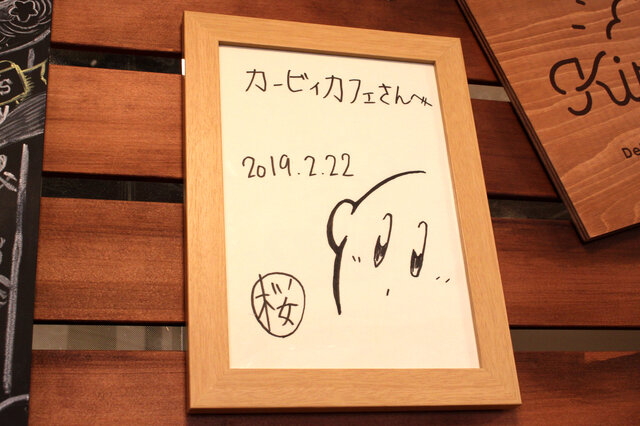 カービィカフェさんへ
2019.2.22
桜
Kir
De